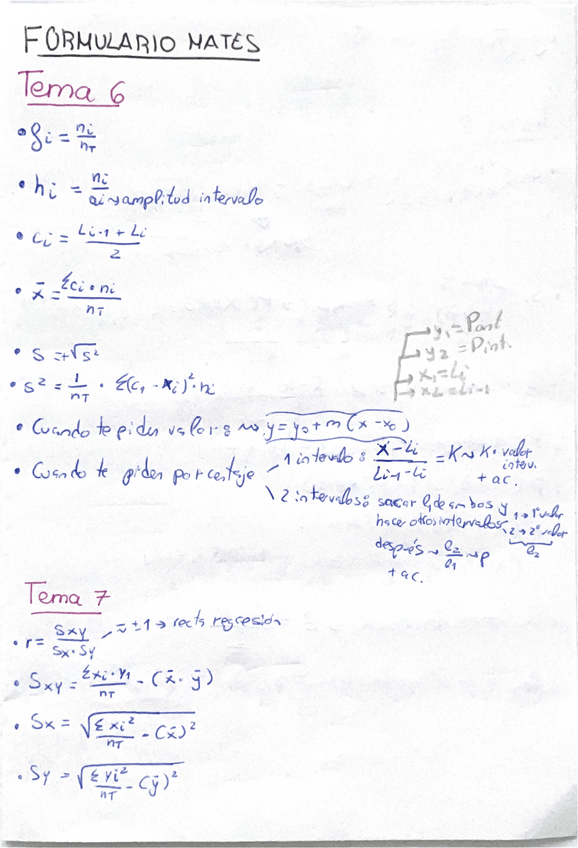 FORMULARIO MATES
Tema 6
• fi = ni/nT
• hi = ni/ai → amplitud intervalo
• ci = Li-1 + Li / 2
• x̄ = Σci • ni / nT
→ y1 = Pant
→ y2 = Pint.
→ x1 = Li
→ x2 = Li-1
• S = +√s²
• s² = 1/nT • Σ(c1 - xi)² • ni
• Cuando te piden valor: → y = y0 + m (x - x0)
• Cuando te piden porcentaje
1 intervalo: x - Li / Li-1 - Li = K → K • valor interv. + ac.
2 intervalos: sacar li de ambos y
hacer otros intervalos
1 → 1º valor
2 → 2º valor
l2
después → l2/l1 → p
+ ac.
Tema 7
• r = Sxy / Sx • Sy ≈ ±1 → recta regresión
• Sxy = Σxi • y1 / nT - (x̄ • ȳ)
• Sx = √Σxi²/nT - (x̄)²
• Sy = √Σyi²/nT - (ȳ)²